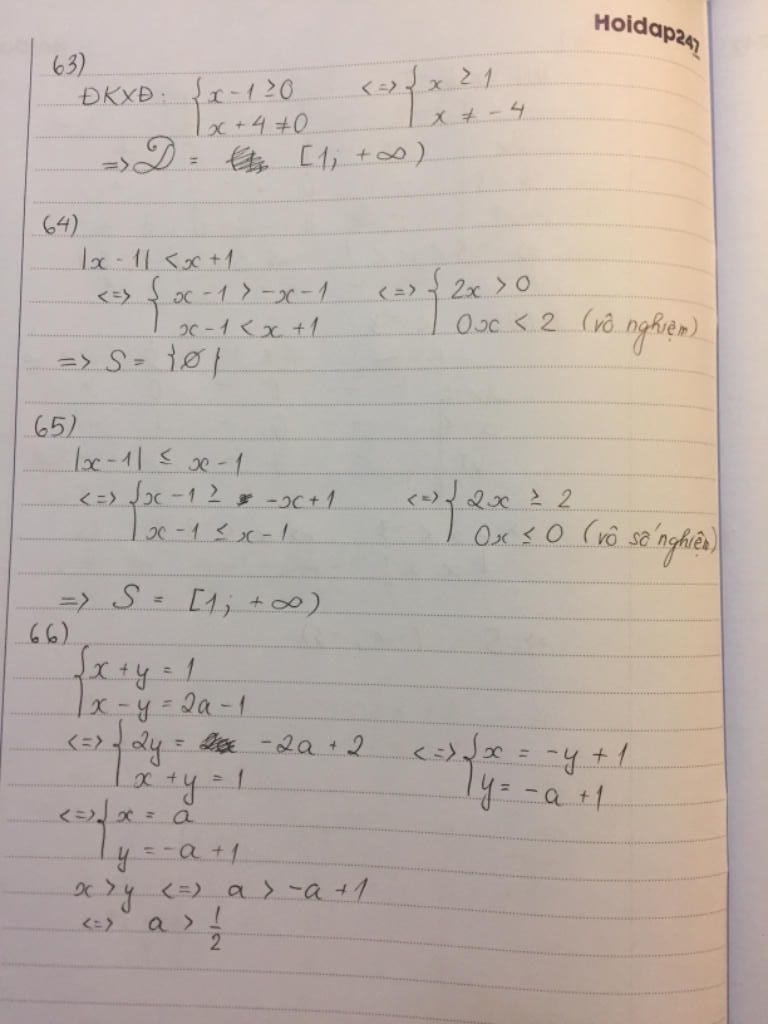 Hoidap247
63)
ĐKXĐ: { x - 1 ≥ 0 <=> { x ≥ 1
x + 4 ≠ 0 x ≠ - 4
=> D = [1; +∞)
64)
|x - 1| < x + 1
<=> { x - 1 > -x - 1 <=> { 2x > 0
x - 1 < x + 1 0x < 2 (vô nghiệm)
=> S = {∅}
65)
|x - 1| ≤ x - 1
<=> { x - 1 ≥ -x + 1 <=> { 2x ≥ 2
x - 1 ≤ x - 1 0x ≤ 0 (vô số nghiệm)
=> S = [1; +∞)
66)
{ x + y = 1
x - y = 2a - 1
<=> { 2y = -2a + 2 <=> { x = -y + 1
x + y = 1 y = -a + 1
<=> { x = a
y = -a + 1
x > y <=> a > -a + 1
<=> a > 1/2